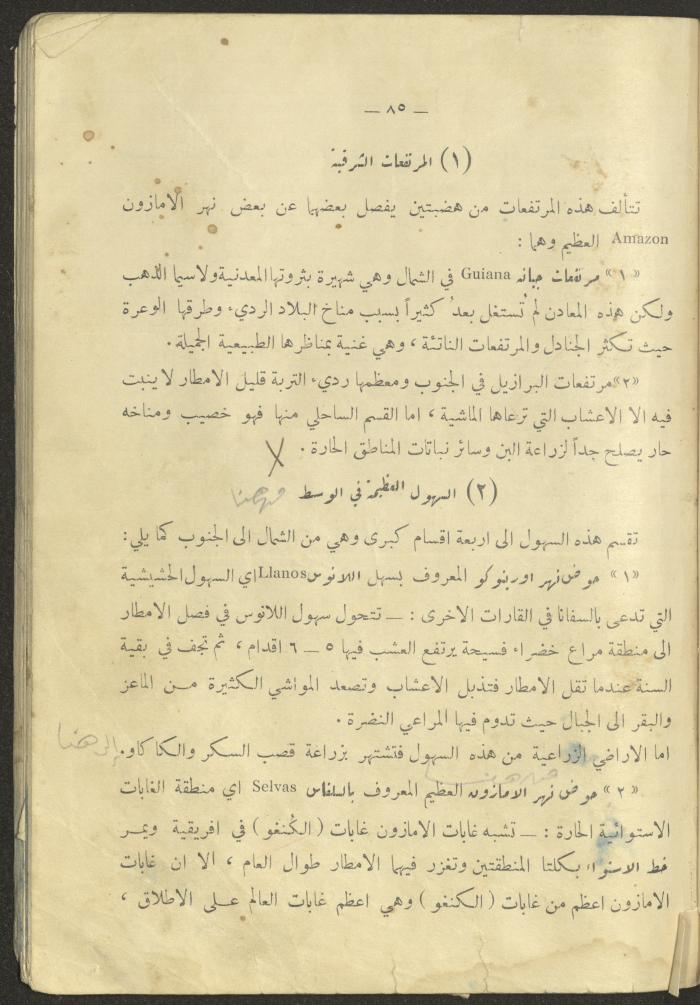 — ٨٥ —
(١) المرتفعات الشرقية
تتألف هذه المرتفعات من هضبتين يفصل بعضهما عن بعض نهر الامازون
Amazon العظيم وهما :
«١» مرتفعات جيانه Guiana في الشمال وهي شهيرة بثروتها المعدنية ولاسيما الذهب
ولكن هذه المعادن لم تُستغل بعدُ كثيراً بسبب مناخ البلاد الرديء وطرقها الوعرة
حيث تكثر الجنادل والمرتفعات الناتئة ، وهي غنية بمناظرها الطبيعية الجميلة .
«٢» مرتفعات البرازيل في الجنوب ومعظمها رديء التربة قليل الامطار لا ينبت
فيه الا الاعشاب التي ترعاها الماشية ، اما القسم الساحلي منها فهو خصيب ومناخه
حار يصلح جداً لزراعة البن وسائر نباتات المناطق الحارة .
(٢) السهول العظيمة في الوسط
تقسم هذه السهول الى اربعة اقسام كبرى وهي من الشمال الى الجنوب كما يلي :
«١» حوض نهر اورينوكو المعروف بسهل اللانوس Llanos اي السهول الحشيشية
التي تدعى بالسفانا في القارات الاخرى : — تتحول سهول اللانوس في فصل الامطار
الى منطقة مراع خضراء فسيحة يرتفع العشب فيها ٥ — ٦ اقدام ، ثم تجف في بقية
السنة عندما تقل الامطار فتذبل الاعشاب وتصعد المواشي الكثيرة من الماعز
والبقر الى الجبال حيث تدوم فيها المراعي النضرة .
اما الاراضي الزراعية من هذه السهول فتشتهر بزراعة قصب السكر والكاكاو .
إلى هنا
«٢» حوض نهر الامازون العظيم المعروف بالسلفاس Selvas اي منطقة الغابات
الاستوائية الحارة : — تشبه غابات الامازون غابات ( الكُنغو ) في افريقية ويمر
خط الاستواء بكلتا المنطقتين وتغزر فيهما الامطار طوال العام ، الا ان غابات
الامازون اعظم من غابات ( الكنغو ) وهي اعظم غابات العالم على الاطلاق ،